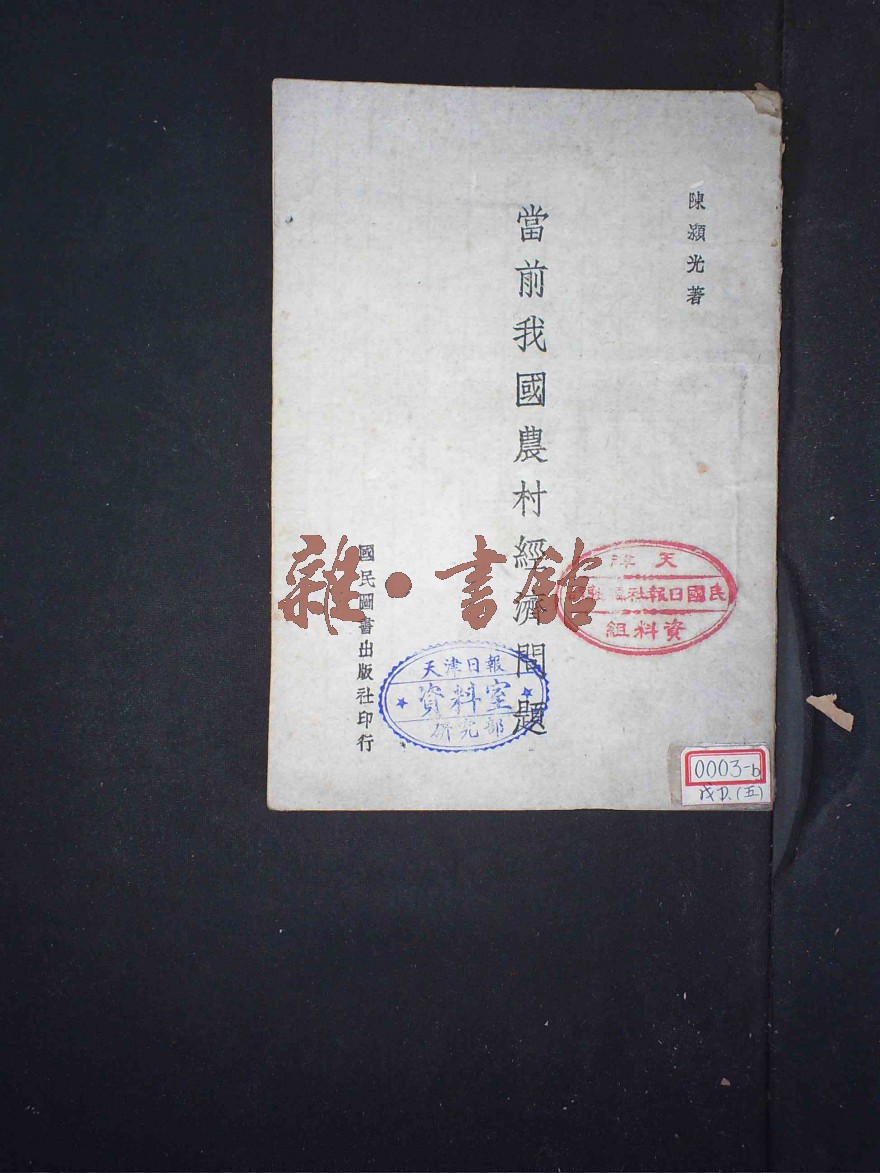 陳灝光著
當前我國農村經濟問題
國民圖書出版社印行
雜·書館
天津
民國日報社
資料組
天津日報
資料室
研究部
0003-b
戊D.(五)